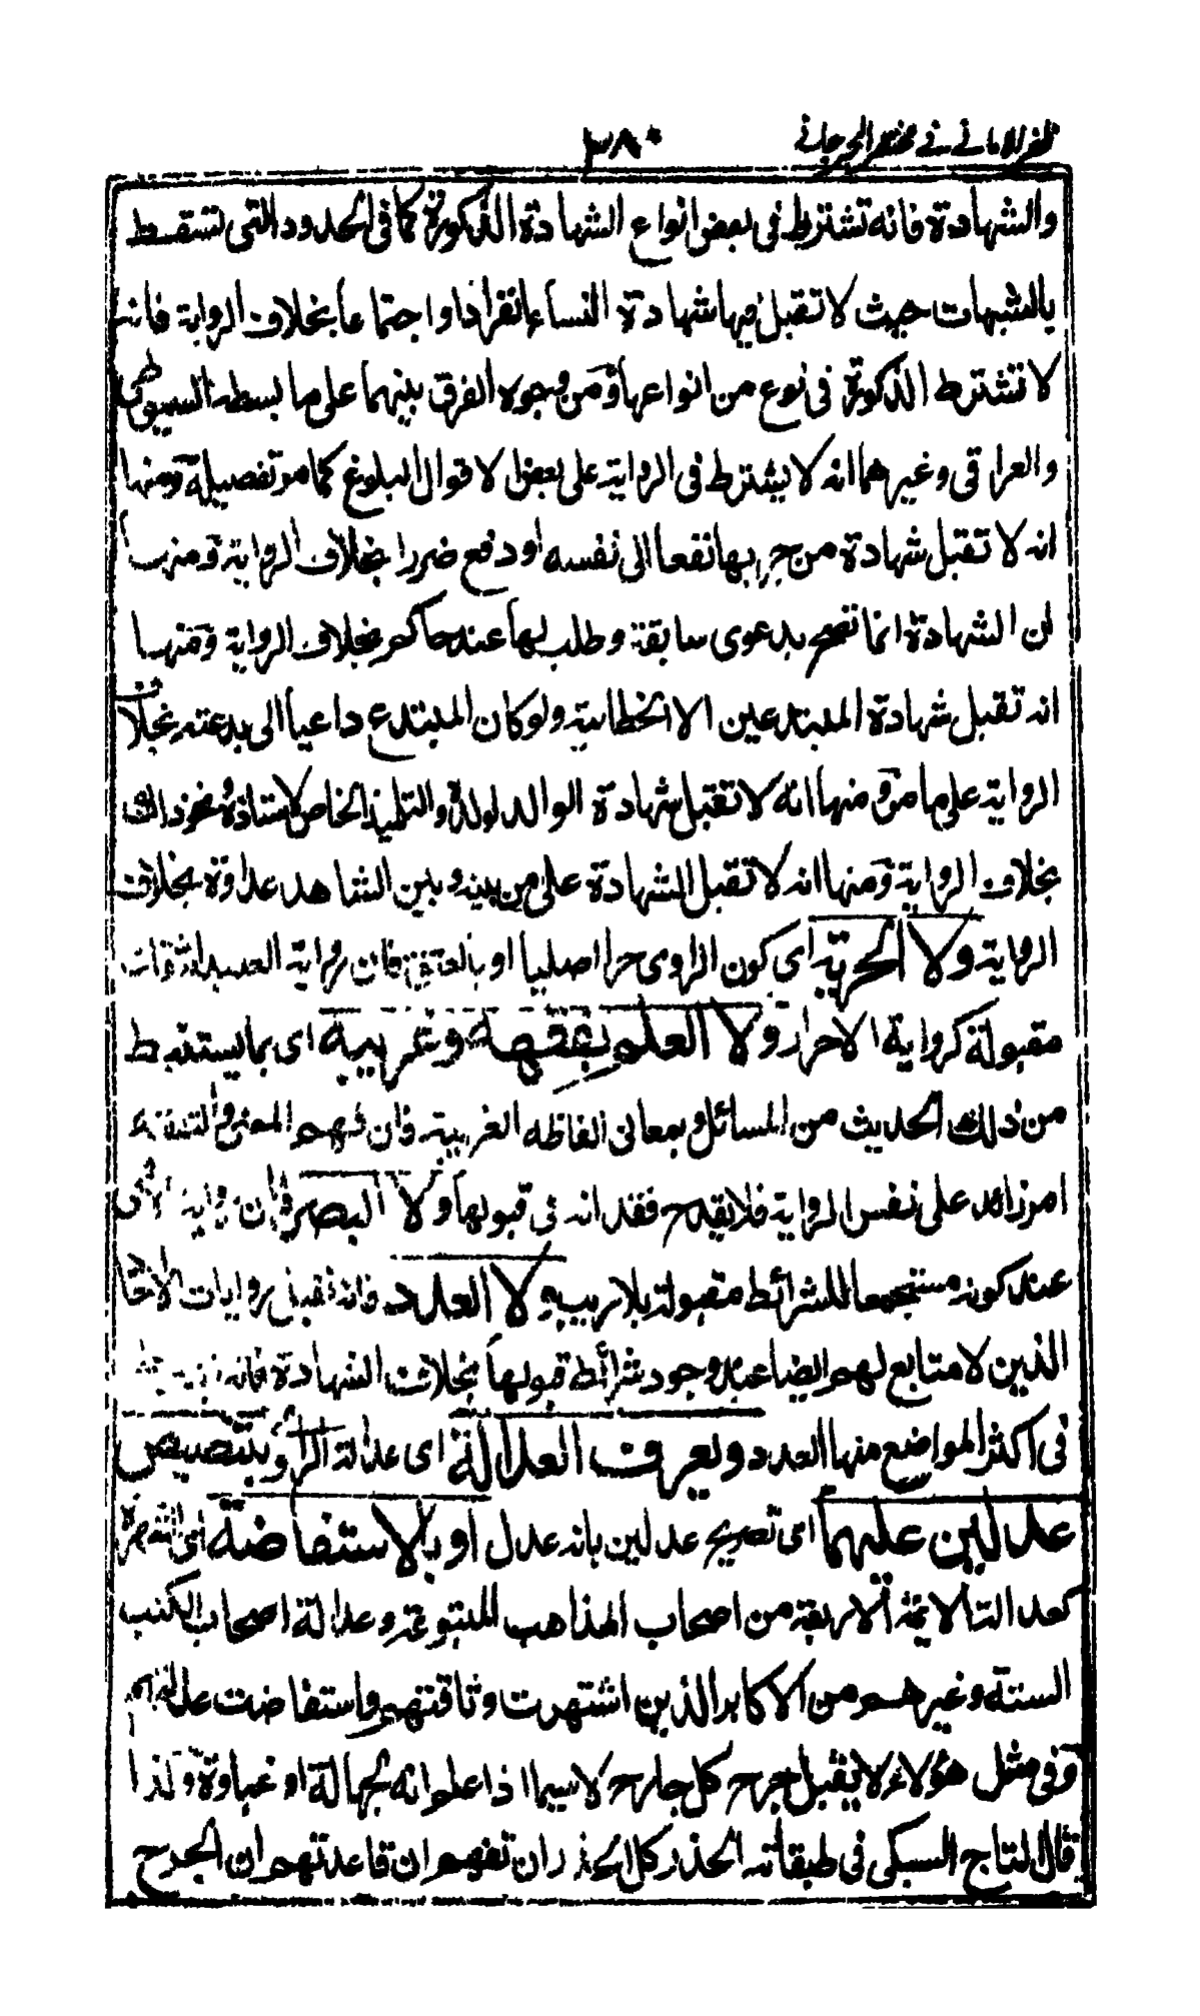 ظفر الاماني في مختصر الجرجاني ٣٨٠
والشهادة فانه تشترط في بعض انواع الشهادة الذكورة كما في الحدود التي تسقط
بالشبهات حيث لا تقبل فيها شهادة النساء انفرادا واجتماعا بخلاف الرواية فانه
لا تشترط الذكورة في نوع من انواعها ومن وجوه الفرق بينهما على ما بسطه السيوطي
والعراقي وغيرهما انه لا يشترط في الرواية على بعض الاقوال البلوغ كما مر تفصيله ومنها
انه لا تقبل شهادة من جر بها نفعا الى نفسه او دفع ضررا بخلاف الرواية ومنها
ان الشهادة انما تصح بدعوى سابقة وطلب لها عند حاكم بخلاف الرواية ومنها
انه تقبل شهادة المبتدعين الا الخطابية ولو كان المبتدع داعيا الى بدعته بخلاف
الرواية على ما مر ومنها انه لا تقبل شهادة الوالد لولده والتلميذ الخاص لاستاذه ونحو ذلك
بخلاف الرواية ومنها انه لا تقبل الشهادة على من بينه وبين الشاهد عداوة بخلاف
الرواية ولا الحرية اى كون الراوى حرا اصليا او بالعتق فان رواية العبيد الثقات
مقبولة كرواية الاحرار ولا العلم بفقهه وغريبه اى بما يستنبط
من ذلك الحديث من المسائل وبمعاني الفاظه الغريبة فان فهم المعنى والتفقه
امر زائد على نفس الرواية فلا يقدح فقدانه في قبولها ولا البصر فان رواية الاعمى
عند كونه مستجمعا للشرائط مقبولة بلا ريب ولا العدد فانه تقبل روايات الآحاد
الذين لا متابع لهم ايضا عند وجود شرائط قبولها بخلاف الشهادة فانه يشترط
في اكثر المواضع منها العدد ويعرف العدالة اى عدالة الراوي بتنصيص
عدلين عليهما اى تصريح عدلين بانه عدل او بالاستفاضة اى الشهرة
كعدالة الائمة الاربعة من اصحاب المذاهب المتبوعة وعدالة اصحاب الكتب
الستة وغيرهم من الاكابر الذين اشتهرت وثاقتهم واستفاضت عدالتهم
وفي مثل هؤلاء لا يقبل جرح كل جارح لا سيما اذا علم انه لجهالة او غباوة ولذا
قال التاج السبكي في طبقاته الحذر كل الحذر ان تفهم ان قاعدتهم ان الجرح